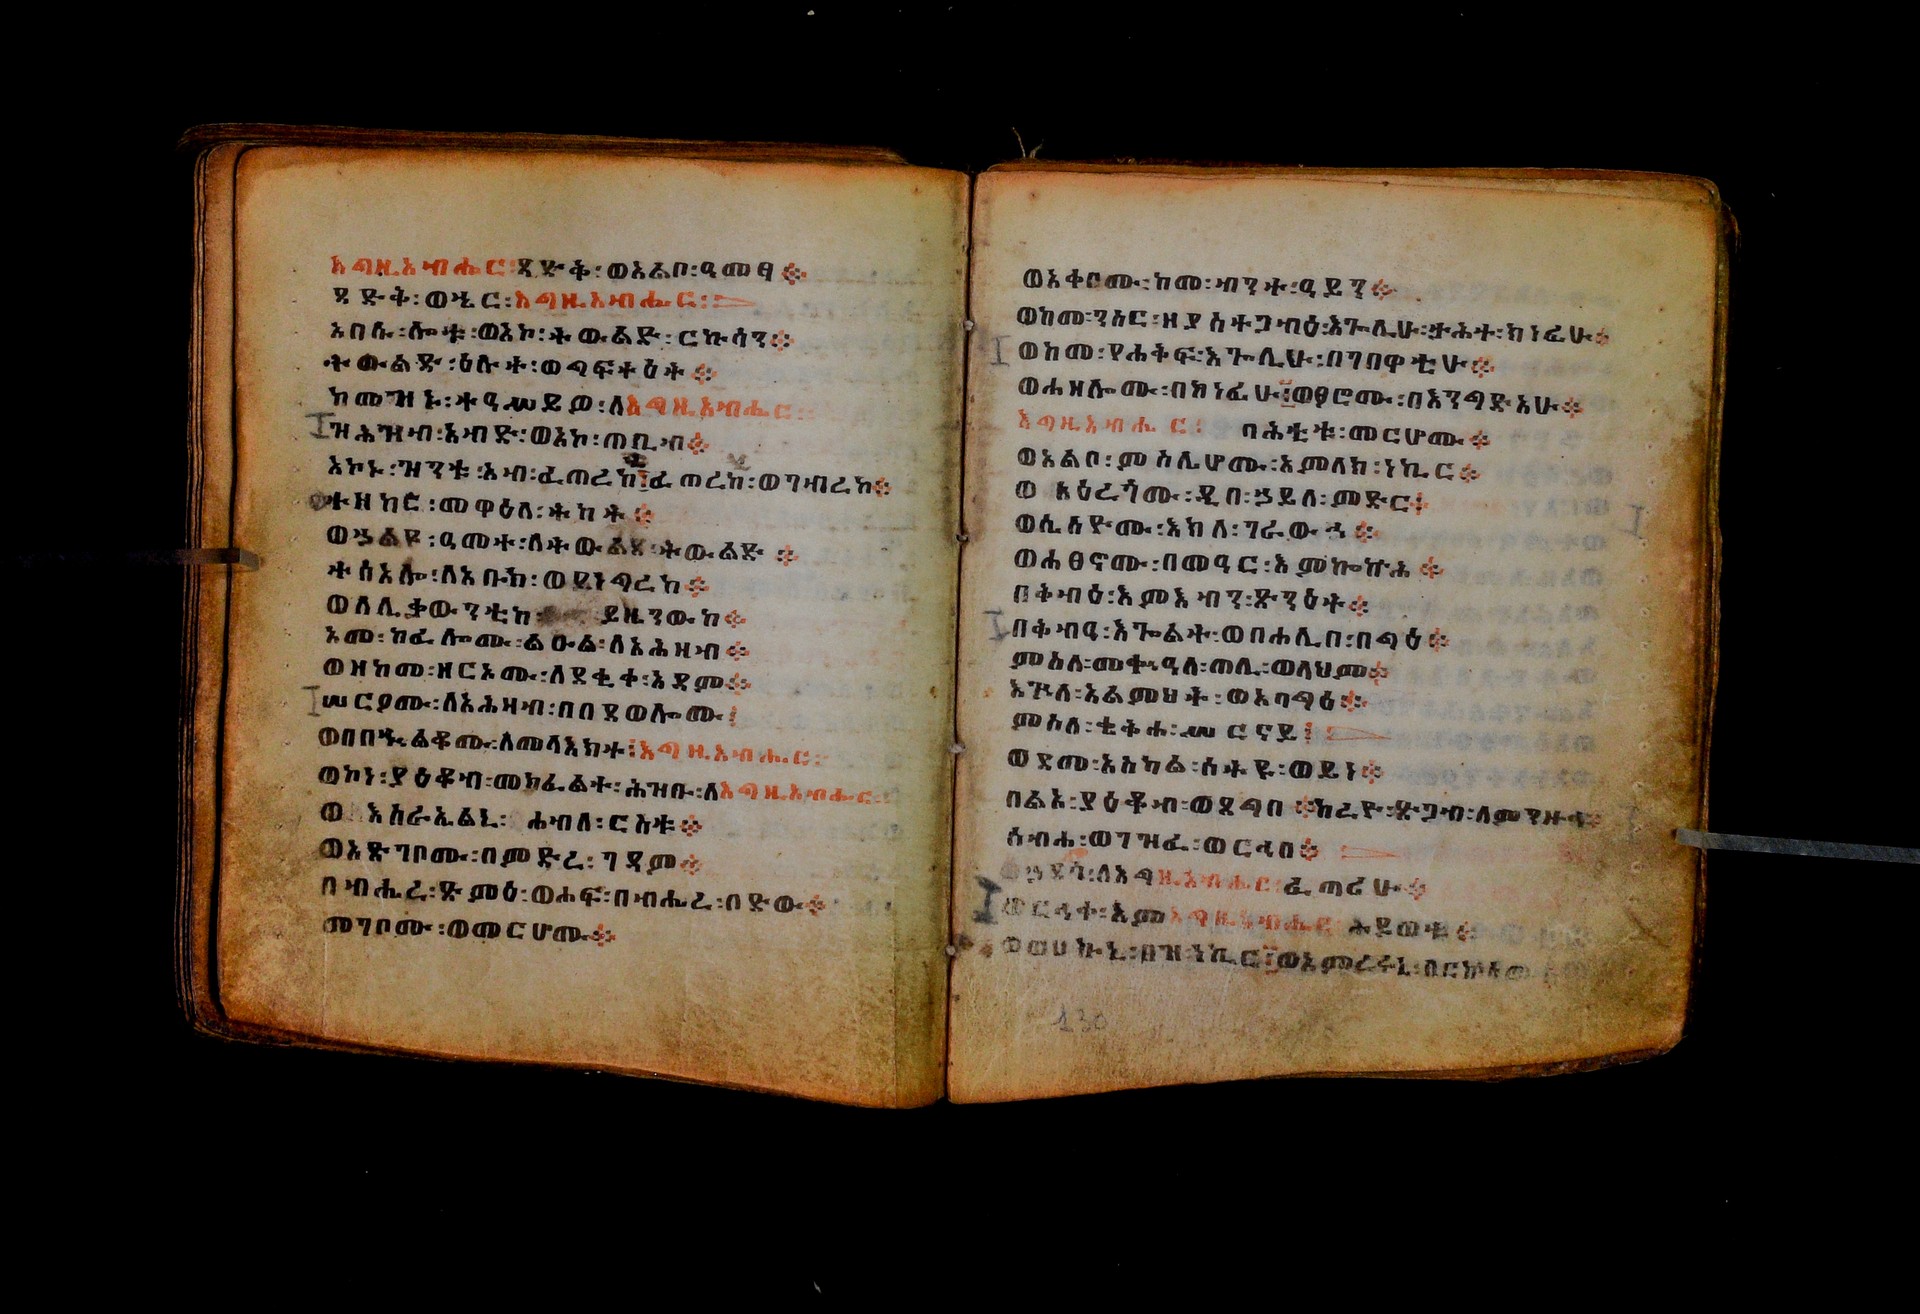 እግዚአብሔር፡ጻድቅ፡ወአልቦ፡ዓመፃ፨
ጻድቅ፡ወኄር፡እግዚአብሔር፡
አበሱ፡ሎቱ፡ወአኮ፡ትውልድ፡ርኩሳን፨
ትውልድ፡ዕሉት፡ወግፍትዕት፨
ከመዝኑ፡ትዓሥይዎ፡ለእግዚአብሔር፡
ዝሕዝብ፡አብድ፡ወአኮ፡ጠቢብ፨
አኮኑ፡ዝንቱ፡አብ፡ፈጠረከ፤ፈጠረከ፡ወገብረከ፨
ተዘከሮ፡መዋዕለ፡ትካት፨
ወኃልዩ፡ዓመተ፡ለትውልደ፡ትውልድ፨
ተሰአሎ፡ለአቡከ፡ወይነግረከ፨
ወለሊቃውንቲከ ይዜንውከ፨
አመ፡ከፈሎሙ፡ልዑል፡ለአሕዛብ፨
ወዘከመ፡ዘርኦሙ፡ለደቂቀ፡አዳም፨
ሠርዖሙ፡ለአሕዛብ፡በበደወሎሙ፤
ወበበኁልቆሙ፡ለመላእክት፤እግዚአብሔር፡
ወኮነ፡ያዕቆብ፡መክፈልተ፡ሕዝቡ፡ለእግዚአብሔር፡
ወ እስራኤልኒ፡ ሐብለ፡ርስቱ፨
ወአጽገቦሙ፡በምድረ፡ገዳም፨
በብሔረ፡ጽምዕ፡ወሐፍ፡በብሔረ፡በድው፨
መገቦሙ፡ወመርሆሙ፨
ወአቀቦሙ፡ከመ፡ብንተ፡ዓይን፨
ወከመ፡ንስር፡ዘያስተጋብዕ፡እጐሊሁ፡ታሕተ፡ክነፊሁ፨
ወከመ፡የሐቅፍ፡እጐሊሁ፡በገበዋቲሁ፨
ወሐዘሎሙ፡በክነፊሁ፤ወፆሮሙ፡በእንግድአሁ፨
እግዚአብሔር፡ ባሕቲቱ፡መርሆሙ፨
ወአልቦ፡ምስሌሆሙ፡አምላክ፡ነኪር፨
ወ አዕረጎሙ፡ዲበ፡ኃይለ፡ምድር፨
ወሴሰዮሙ፡እክለ፡ገራውኅ፨
ወሐፀኖሙ፡በመዓር፡እምኰኵሕ፨
በቅብዕ፡እምእብን፡ጽንዕት፨
በቅብዓ፡እጐልት፡ወበሐሊበ፡በግዕ፨
ምስለ፡መቍዓለ፡ጠሊ፡ወላህም፨
እጓለ፡አልምህት፡ወአባግዕ፨
ምስለ፡ቂቅሐ፡ሥርናይ፤
ወደመ፡አስካል፡ሰትዩ፡ወይነ፨
በልአ፡ያዕቆብ፡ወጸግበ፨
ሰብሐ፡ወገዝፈ፡ወርኅበ፨
ወኃደጎ፡ለእግዚአብሔር፡ፈጣሪሁ፨
ወርኅቀ፡እምእግዚአብሔር፡ሕይወቱ፨